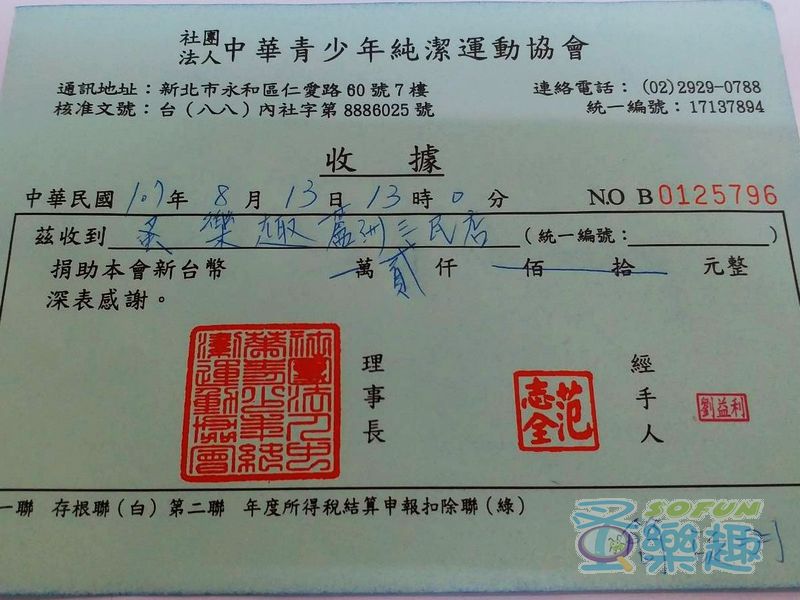 社團法人中華青少年純潔運動協會
通訊地址：新北市永和區仁愛路60號7樓 連絡電話：(02)2929-0788
核准文號：台（八八）內社字第8886025號 統一編號：17137894
收 據
中華民國107年8月13日13時0分 N.O B0125796
茲收到 蚤樂趣蘆洲三民店 （統一編號： ）
捐助本會新台幣 萬貳仟 佰 拾 元整
深表感謝。
理事長 范志全 經手人 劉益利
一聯 存根聯(白) 第二聯 年度所得稅結算申報扣除聯(綠)
SOFUN
蚤樂趣